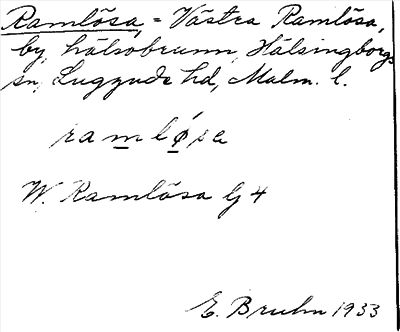 Ramlösa, = Västra Ramlösa,
by, hälsobrunn, Hälsingborgs
sn, Luggude hd, Malm. l.
ramløsa
W. Ramlösa Gj 4
E. Bruhn 1933